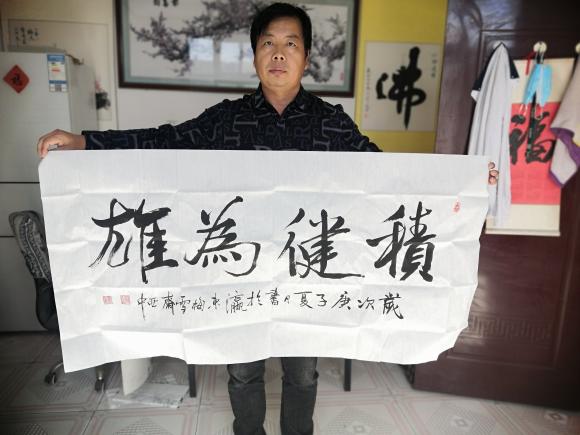 積健為雄
歲次庚子夏日書於瀛水梅雪齋亚中
佛
福
福